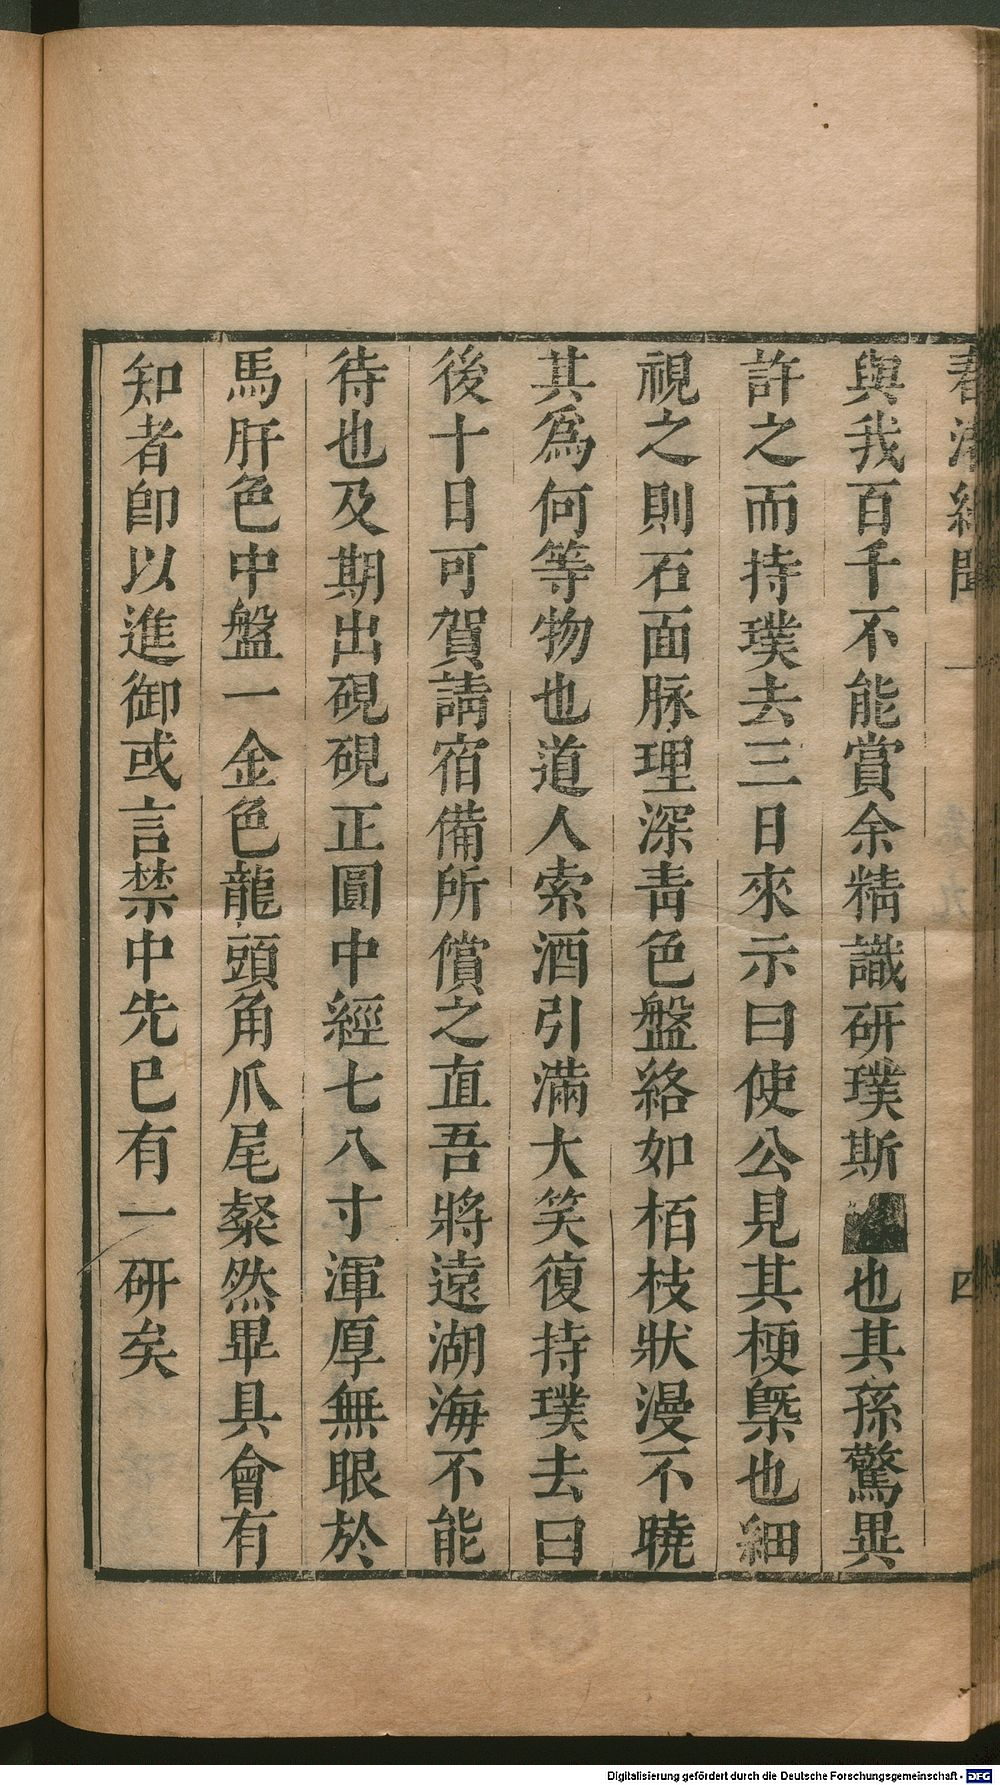 與我百千不能賞余精識研璞斯■也其孫驚異
許之而持璞去三日來示曰使公見其梗槩也細
視之則石面脉理深青色盤絡如栢枝狀漫不曉
其爲何等物也道人索酒引滿大笑復持璞去曰
後十日可賀請宿備所償之直吾將遠湖海不能
待也及期出硯硯正圓中經七八寸渾厚無眼於
馬肝色中盤一金色龍頭角爪尾粲然畢具會有
知者卽以進御或言禁中先已有一研矣
Digitalisierung gefördert durch die Deutsche Forschungsgemeinschaft - DFG